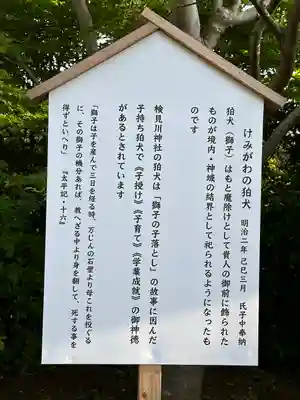 けみがわの狛犬 明治二年 己巳三月 氏子中奉納
狛犬（獅子）はもと魔除けとして貴人の御前に飾られた
ものが境内・神域の結界として祀られるようになったも
のです
検見川神社の狛犬は「獅子の子落とし」の故事に因んだ
子持ち狛犬で《子授け》《子育て》《学業成就》の御神徳
があるとされています
「獅子は子を産んで三日を経る時、万じんの石壁より母これを投ぐる
に、その獅子の機分あれば、教へざる中より身を翻して、死する事を
得ずといへり」『太平記・十六』